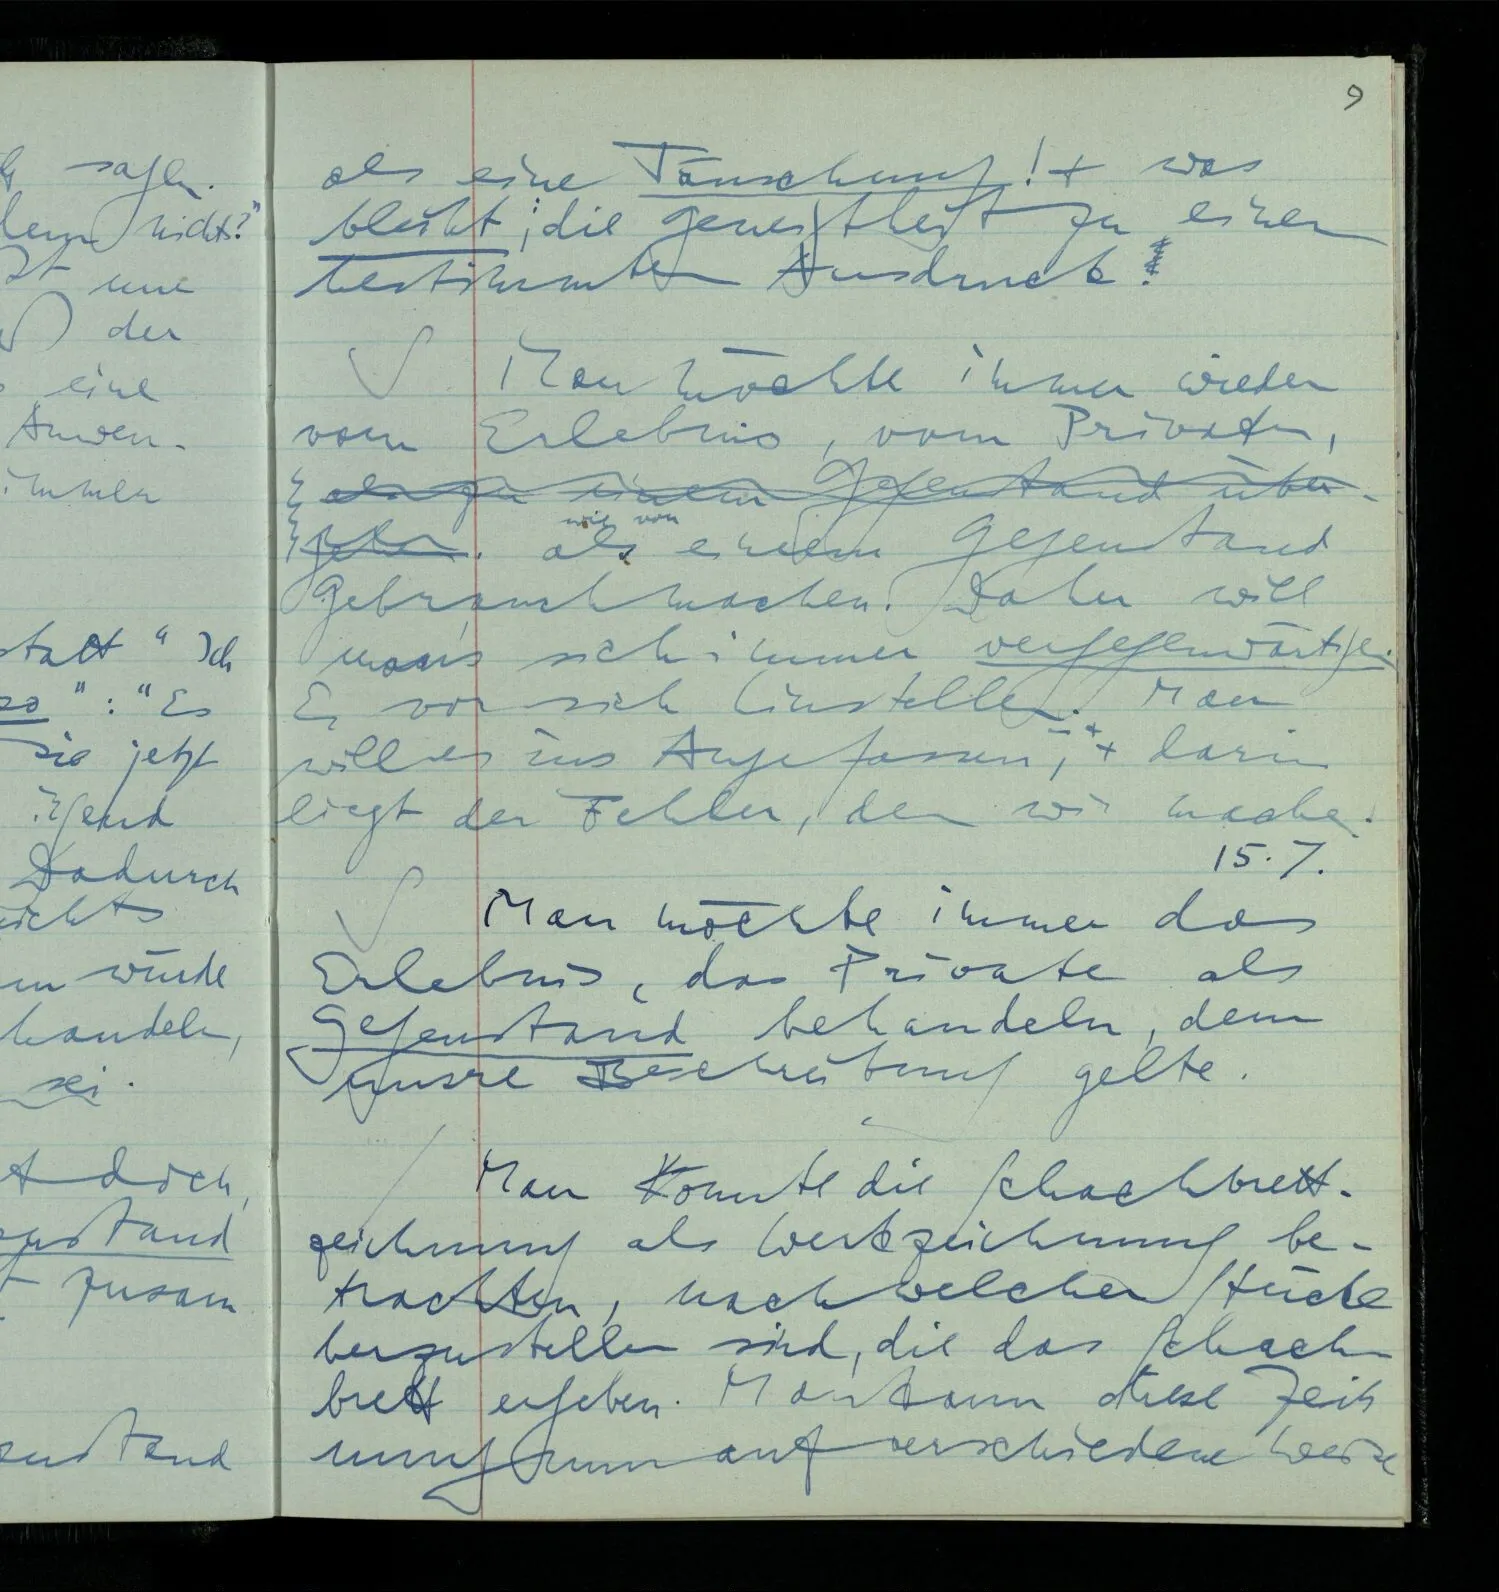 9
sagen.
nicht?"
und
der
eine
Anwen-
immer
statt " Ich
so " : " Es
sie jetzt
irgend
Dadurch
nichts
würde
handeln,
sei.
doch,
Gegenstand
zusam
Gegenstand
als eine Täuschung! + was
bleibt, die Geneigtheit zu einem
bestimmten Ausdruck!
Man möchte immer wieder
vom Erlebnis, vom Privaten,
als zu einem Gegenstand über-
gehen. als einem Gegenstand
wie von
Gebrauch machen. Daher will
man's sich immer vergegenwärtigen.
Es vor sich hinstellen. Man
will es ins Auge fassen, + darin
liegt der Fehler, den wir machen.
15.7.
Man möchte immer das
Erlebnis, das Private als
Gegenstand behandeln, dem
unsre Beschreibung gelte.
Man könnte die Schachbrett-
zeichnung als Werkzeichnung be-
trachten, nach welcher Stücke
herzustellen sind, die das Schach
brett ergeben. Man kann diese Zeich
nung nun auf verschiedene Weise